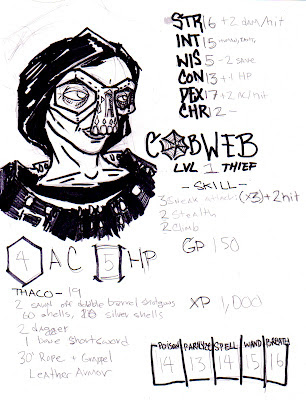 STR 16 +2 dam/hit
INT 15
WIS 5 -2 save
CON 13 +1 HP
DEX 17 +2 AC/hit
CHR 12 -
COBWEB
LVL 1 THIEF
- SKILL -
3 Sneak attacks (x3) +2 hit
2 Stealth
2 Climb
GP 150
4 AC 5 HP
THACO - 19
2 sawn off dubble barrel shotguns
60 shells, silver shells
2 dagger
1 bone shortsword
30' Rope + Grappel
Leather Armor
XP 1,000
POISON PARALYZE SPELL WAND BREATH
14 13 14 15 16